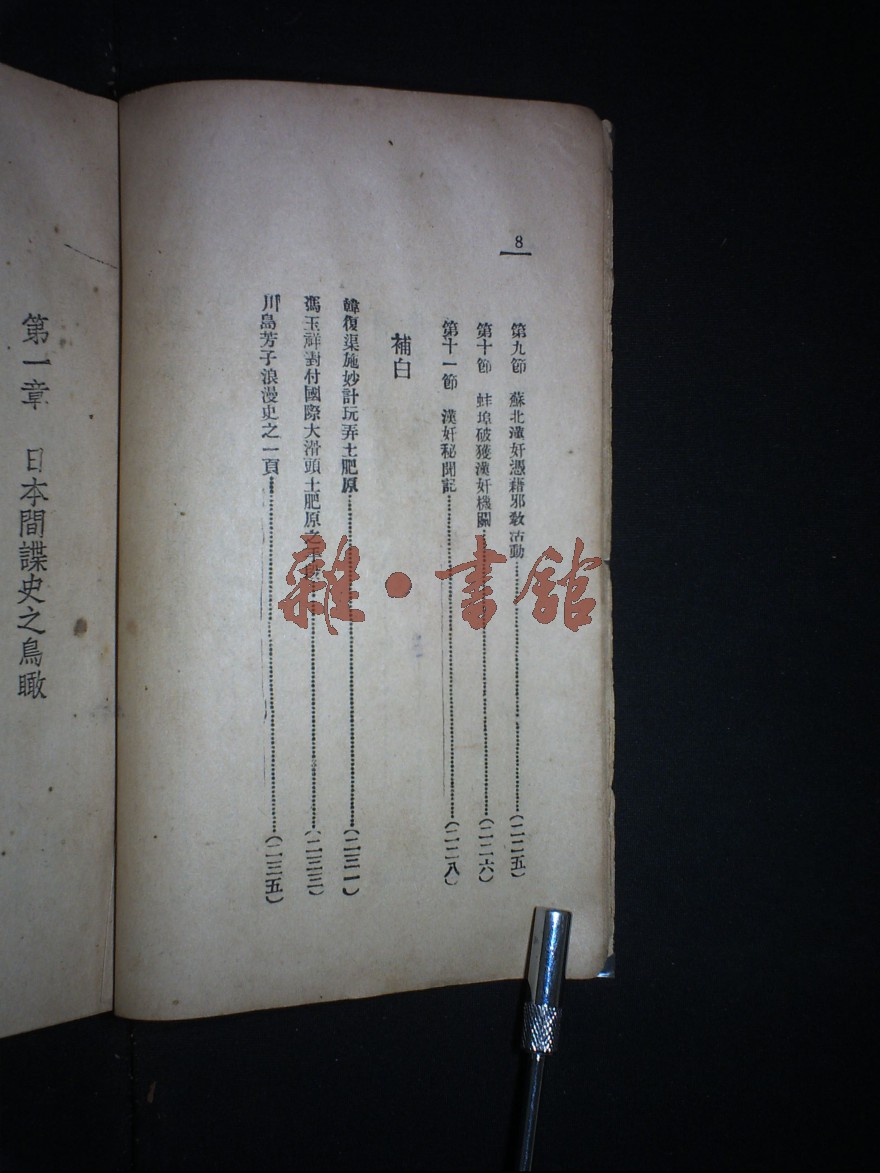 8
第九節　蘇北漢奸憑藉邪教活動……(二二五)
第十節　蚌埠破獲漢奸機關……(二二六)
第十一節　漢奸秘聞記……(二二八)
補白
韓復渠施妙計玩弄土肥原……(二三一)
馮玉祥對付國際大滑頭土肥原之……(二三三)
川島芳子浪漫史之一頁……(二三五)
第一章　日本間諜史之鳥瞰
雜·書館